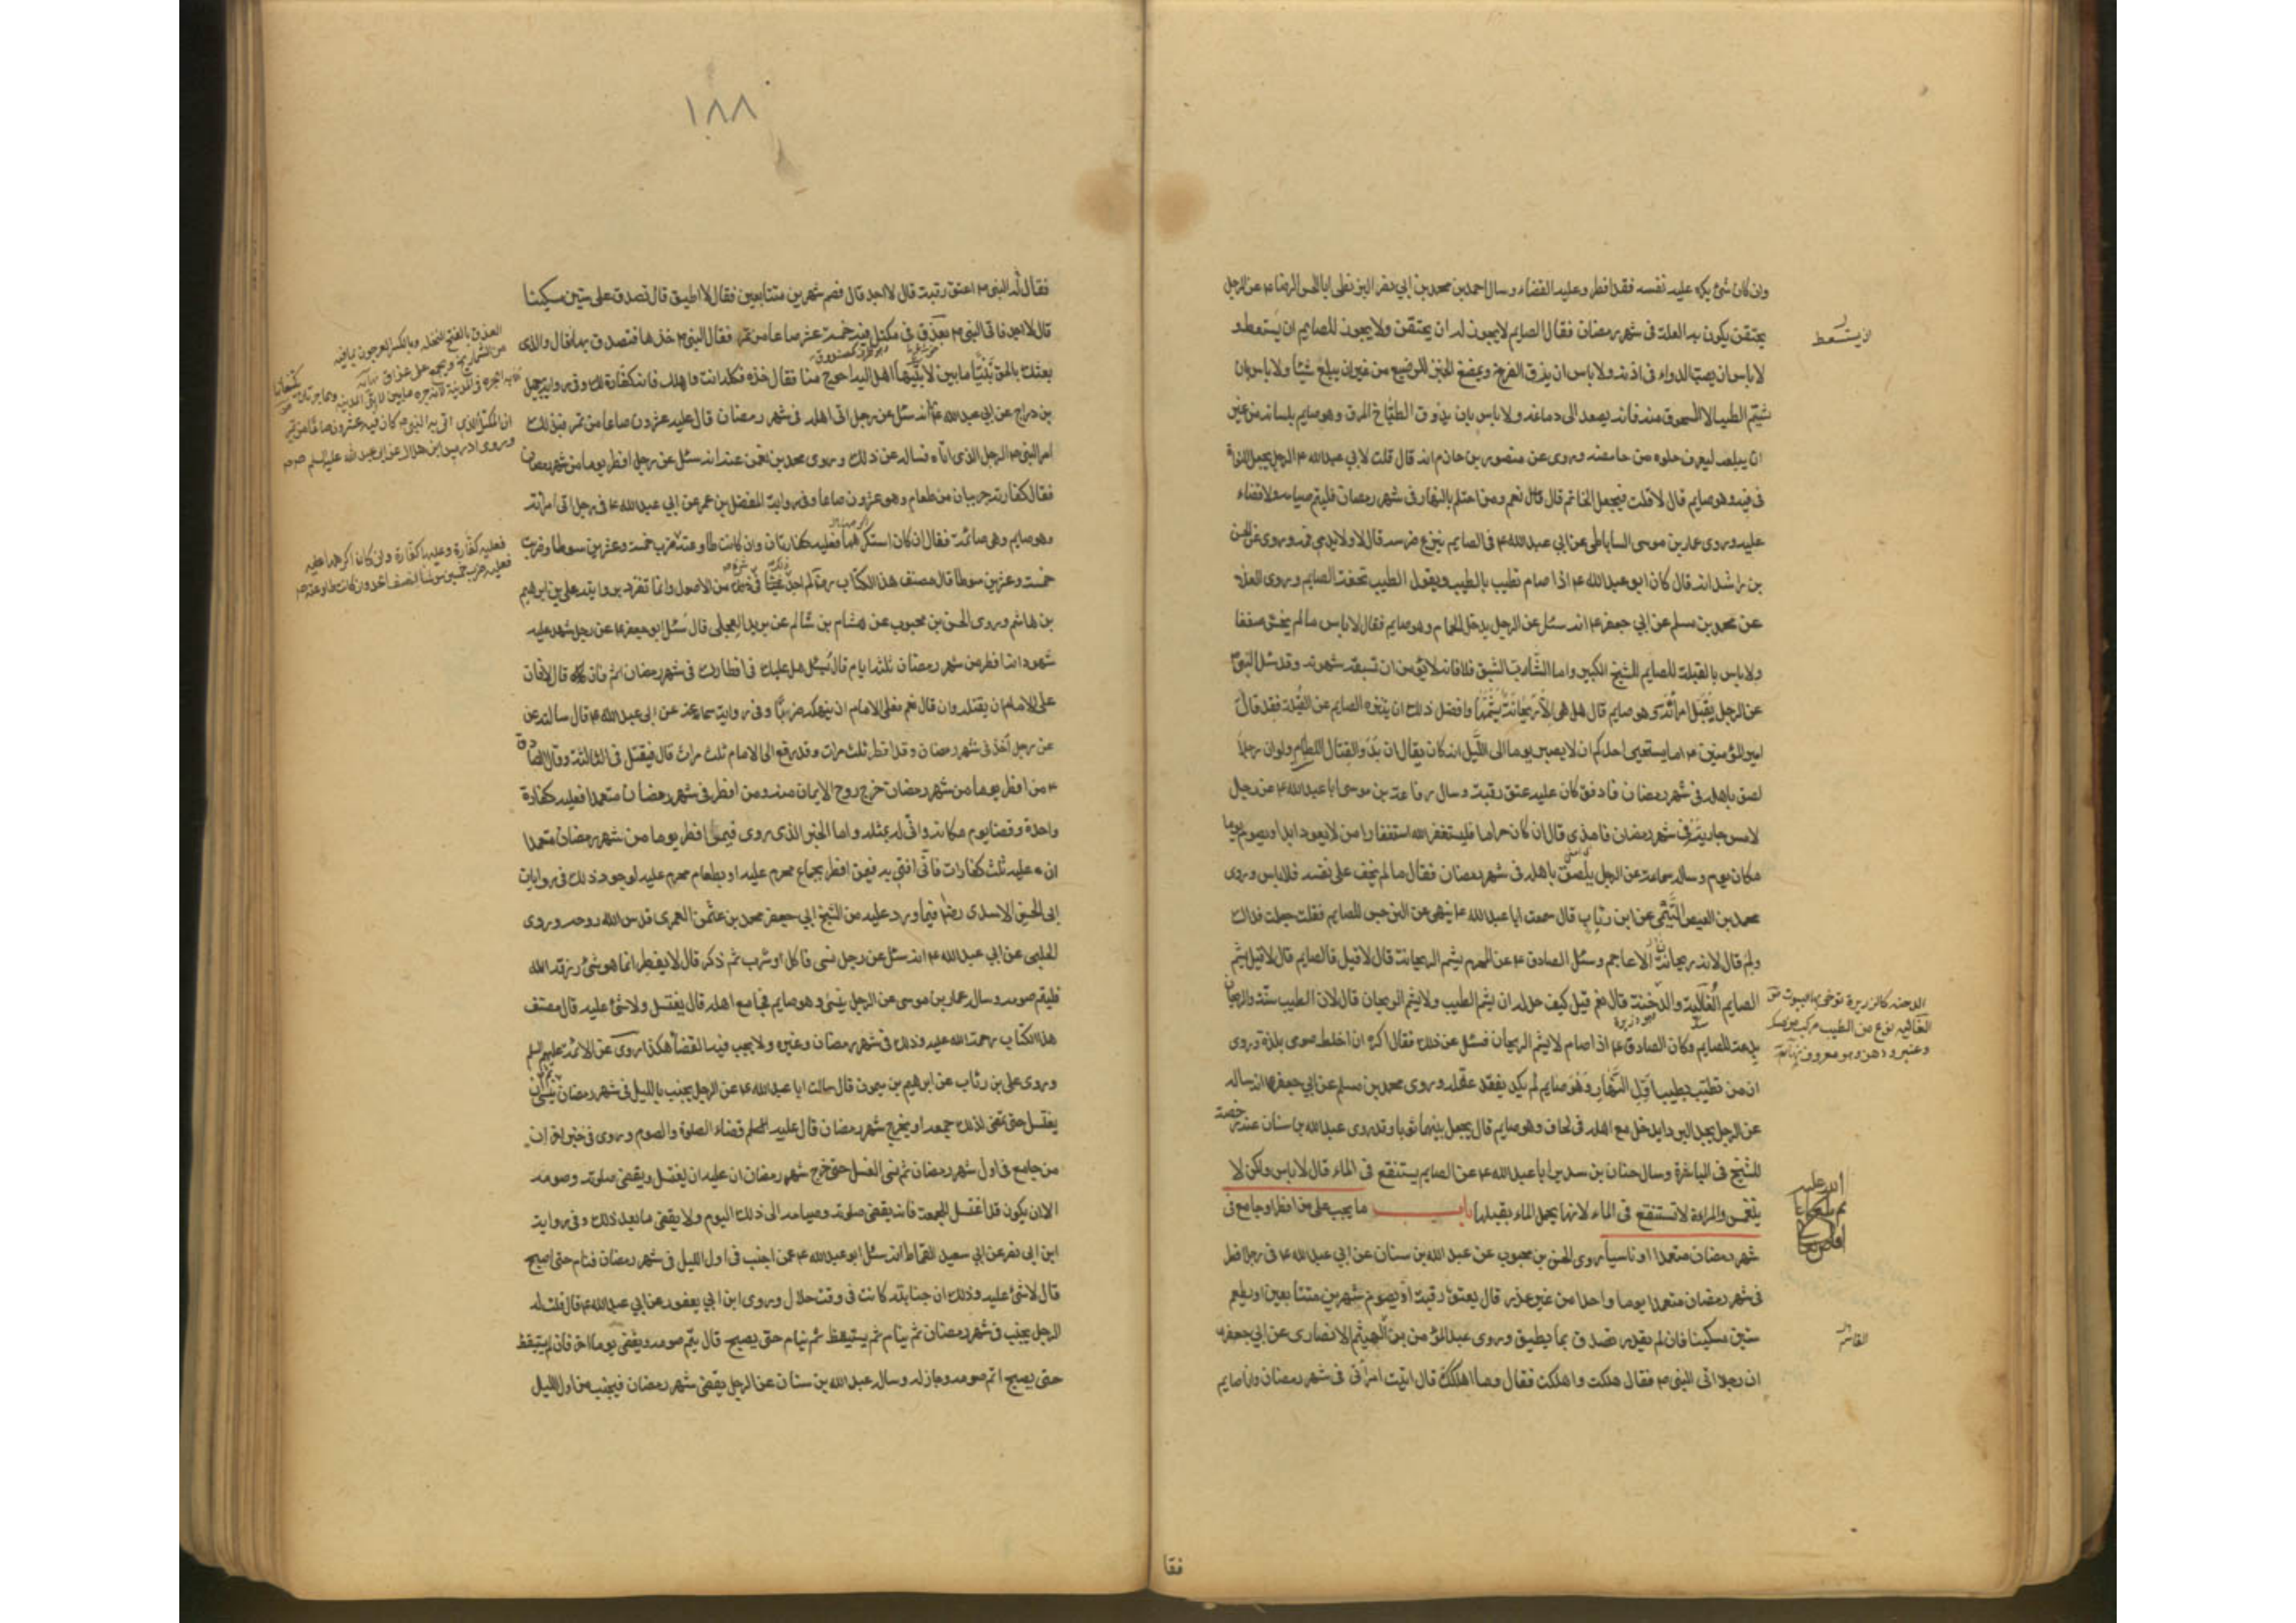 وان كان شئ يكره عليه نفسه فقد افطر وعليه القضاء وسال احمد بن محمد بن ابي نصر البزنطي ابا الحسن الرضا ء عن الرجل
يحتقن يكون به العلة في شهر رمضان فقال الصايم لا يجوز له ان يحتقن ولا يجوز للصايم ان يستعط و
لا باس ان يصب الدواء في اذنه ولا باس ان يذق الفرخ ويمضغ الخبز للرضيع من غير ان يبلع شيئا ولا باس بان
يشتم الطيب الا المسحوق منه فانه يصعد الى دماغه ولا باس بان يذوق الطباخ المرق وهو صايم بلسانه من غير
ان يبلعه ليعرف حلوه من حامضه وروى عن منصور بن حازم انه قال قلت لابي عبد الله ء الرجل يجعل النواة
في فيه وهو صايم قال لا قلت فيجعل الخاتم قال نعم ومن احتلم بالنهار في شهر رمضان فليتم صيامه ولا قضاء
عليه وروى عمار بن موسى الساباطي عن ابي عبد الله ء في الصايم ينزع ضرسه قال لا ولا يدمي فمه وروى عن الحسن
بن راشد انه قال كان ابو عبد الله ء اذا صام تطيب بالطيب ويقول الطيب تحفة الصايم وروى العلاء
عن محمد بن مسلم عن ابي جعفر ء انه سئل عن الرجل يدخل الحمام وهو صايم فقال لا باس ما لم يخش ضعفا
ولا باس بالقبلة للصايم للشيخ الكبير واما الشاب الشبق فلا فانه لا يؤمن ان تسبقه شهوته وقد سئل النبي ص
عن الرجل يقبل امراته وهو صايم قال هل هي الا ريحانة يشمها وافضل ذلك ان يتنزه الصايم عن القبلة فقد قال
امير المؤمنين ء اما يستحيي احدكم ان لا يصبر يوما الى الليل انه كان يقال ان بدو القتال اللطام ولو ان رجلا
لصق باهله في شهر رمضان فادفق كان عليه عتق رقبة وسال رفاعة بن موسى ابا عبد الله ء عن رجل
لامس جارية في شهر رمضان فامذى قال ان كان حراما فليستغفر الله استغفار من لا يعود ابدا ويصوم يوما
مكان يوم وساله سماعة عن الرجل يلصق باهله في شهر رمضان فقال ما لم يخف على نفسه فلا باس وروى
محمد بن الفيض التيمي عن ابن رئاب قال سمعت ابا عبد الله ء ينهى عن النرجس للصايم فقلت جعلت فداك
ولم قال لانه ريحان الاعاجم وسئل الصادق ء عن المحرم يشم الريحان قال لا قيل فالصايم قال لا قيل يشم
الصايم الغالية والدخنة قال نعم قيل كيف حل له ان يشم الطيب ولا يشم الريحان قال لان الطيب سنة والريحان
بدعة للصايم وكان الصادق ء اذا صام لا يشم الريحان فسئل عن ذلك فقال اكره ان اخلط صومي بلذة وروى
ان من تطيب بطيب اول النهار وهو صايم لم يكد يفقد عقله وروى محمد بن مسلم عن ابي جعفر ء انه ساله
عن الرجل يجد البرد ايدخل مع اهله في لحاف وهو صايم قال يجعل بينهما ثوبا وقد روى عبد الله بن سنان عنه رخصة
للشيخ في المباشرة وسال حنان بن سدير ابا عبد الله ء عن الصايم يستنقع في الماء قال لا باس ولكن لا
ينغمس والمراة لا تستنقع في الماء لانها تحمل الماء بقبلها باب ما يجب على من افطر او جامع في
شهر رمضان متعمدا او ناسيا روى الحسن بن محبوب عن عبد الله بن سنان عن ابي عبد الله ء في رجل افطر
في شهر رمضان متعمدا يوما واحدا من غير عذر قال يعتق رقبة او يصوم شهرين متتابعين او يطعم
ستين مسكينا فان لم يقدر تصدق بما يطيق وروى عبد المؤمن بن الهيثم الانصاري عن ابي جعفر ء
ان رجلا اتى النبي ص فقال هلكت واهلكت فقال وما اهلكك قال اتيت امراتي في شهر رمضان وانا صايم
ان يستعط
الدخنة كالذريرة تدخن بها البيوت
الغالية نوع من الطيب مركب من مسك
وعنبر ودهن وهو معروف نهاية
القاسم
فقا
١٨٨
فقال له النبي ص اعتق رقبة قال لا اجد قال فصم شهرين متتابعين فقال لا اطيق قال تصدق على ستين مسكينا
قال لا اجد فاتي النبي ص بعذق في مكتل فيه خمسة عشر صاعا من تمر فقال النبي ص خذها فتصدق بها فقال والذي
بعثك بالحق نبيا ما بين لابتيها اهل بيت احوج منا فقال خذه فكله انت واهلك فانه كفارة لك وفي رواية جميل
بن دراج عن ابي عبد الله ء انه سئل عن رجل اتى اهله في شهر رمضان قال عليه عشرون صاعا من تمر فبذلك
امر النبي ص الرجل الذي اتاه فساله عن ذلك وروى محمد بن نعمن عنه انه سئل عن رجل افطر يوما من شهر رمضان
فقال كفارته جريبان من طعام وهو عشرون صاعا وفي رواية المفضل بن عمر عن ابي عبد الله ء في رجل اتى امراته
وهو صايم وهي صائمة فقال ان كان استكرهها فعليه كفارتان وان كانت طاوعته ضرب خمسة وعشرين سوطا وضربت
خمسة وعشرين سوطا قال مصنف هذا الكتاب ره لم اجد شيئا في ذلك من الاصول وانما تفرد بروايته علي بن ابرهيم
بن هاشم وروى الحسن بن محبوب عن هشام بن سالم عن بريد العجلي قال سئل ابو جعفر ء عن رجل شهد عليه
شهود انه افطر من شهر رمضان ثلثة ايام قال يسئل هل عليك في افطارك في شهر رمضان اثم فان قال لا فان
على الامام ان يقتله وان قال نعم فعلى الامام ان ينهكه ضربا وفي رواية سماعة عن ابي عبد الله ء قال سالته عن
عن رجل اخذ في شهر رمضان وقد افطر ثلث مرات وقد رفع الى الامام ثلث مرات قال فيقتل في الثالثة وقال الصادق
ء من افطر يوما من شهر رمضان خرج روح الايمان منه ومن افطر في شهر رمضان متعمدا فعليه كفارة
واحدة وقضا يوم مكانه واني له بمثله واما الخبر الذي روى فيمن افطر يوما من شهر رمضان متعمدا
ان عليه ثلث كفارات فاني افتي به فيمن افطر بجماع محرم عليه او بطعام محرم عليه لوجود ذلك في روايات
ابي الحسين الاسدي رضه فيما ورد عليه من الشيخ ابي جعفر محمد بن عثمن العمري قدس الله روحه وروى
الحلبي عن ابي عبد الله ء انه سئل عن رجل نسي فاكل او شرب ثم ذكر قال لا يفطر انما هو شئ رزقه الله
فليتم صومه وسال عمار بن موسى عن الرجل ينسى وهو صايم فجامع اهله قال يغتسل ولا شئ عليه قال مصنف
هذا الكتاب رحمة الله عليه وذلك في شهر رمضان وغيره ولا يجب فيه القضا هكذا روى عن الائمة عليهم السلم
وروى علي بن رئاب عن ابرهيم بن ميمون قال سالت ابا عبد الله ء عن الرجل يجنب بالليل في شهر رمضان ثم ينسى ان
يغتسل حتى تمضي لذلك جمعة او يخرج شهر رمضان قال عليه قضاء الصلوة والصوم وروى في خبر اخر ان
من جامع في اول شهر رمضان ثم نسي الغسل حتى خرج شهر رمضان ان عليه ان يغتسل ويقضي صلوته وصومه
الا ان يكون قد اغتسل للجمعة فانه يقضي صلوته وصيامه الى ذلك اليوم ولا يقضي ما بعد ذلك وفي رواية
ابن ابي نصر عن ابي سعيد القماط انه سئل ابو عبد الله ء عمن اجنب في اول الليل في شهر رمضان فنام حتى اصبح
قال لا شئ عليه وذلك ان جنابته كانت في وقت حلال وروى ابن ابي يعفور عن ابي عبد الله ء قال قلت له
الرجل يجنب في شهر رمضان ثم ينام ثم يستيقظ ثم ينام حتى يصبح قال يتم صومه ويقضي يوما اخر فان لم يستيقظ
حتى يصبح اتم صومه وجاز له وساله عبد الله بن سنان عن الرجل يقضي شهر رمضان فيجنب من اول الليل
العذق بالفتح النخلة وبالكسر العرجون بما فيه
من الشماريخ ويجمع على عذاق نهاية
ان المكتل الذي اتى به النبي ص كان فيه عشرون صاعا من تمر
وروى ادريس ابن هلال عن ابي عبد الله عليه السلم
فعليه كفارة وعليها كفارة وان كان اكرهها عليه
فعليه ضرب خمسين سوطا نصف الحد وان كانت طاوعته